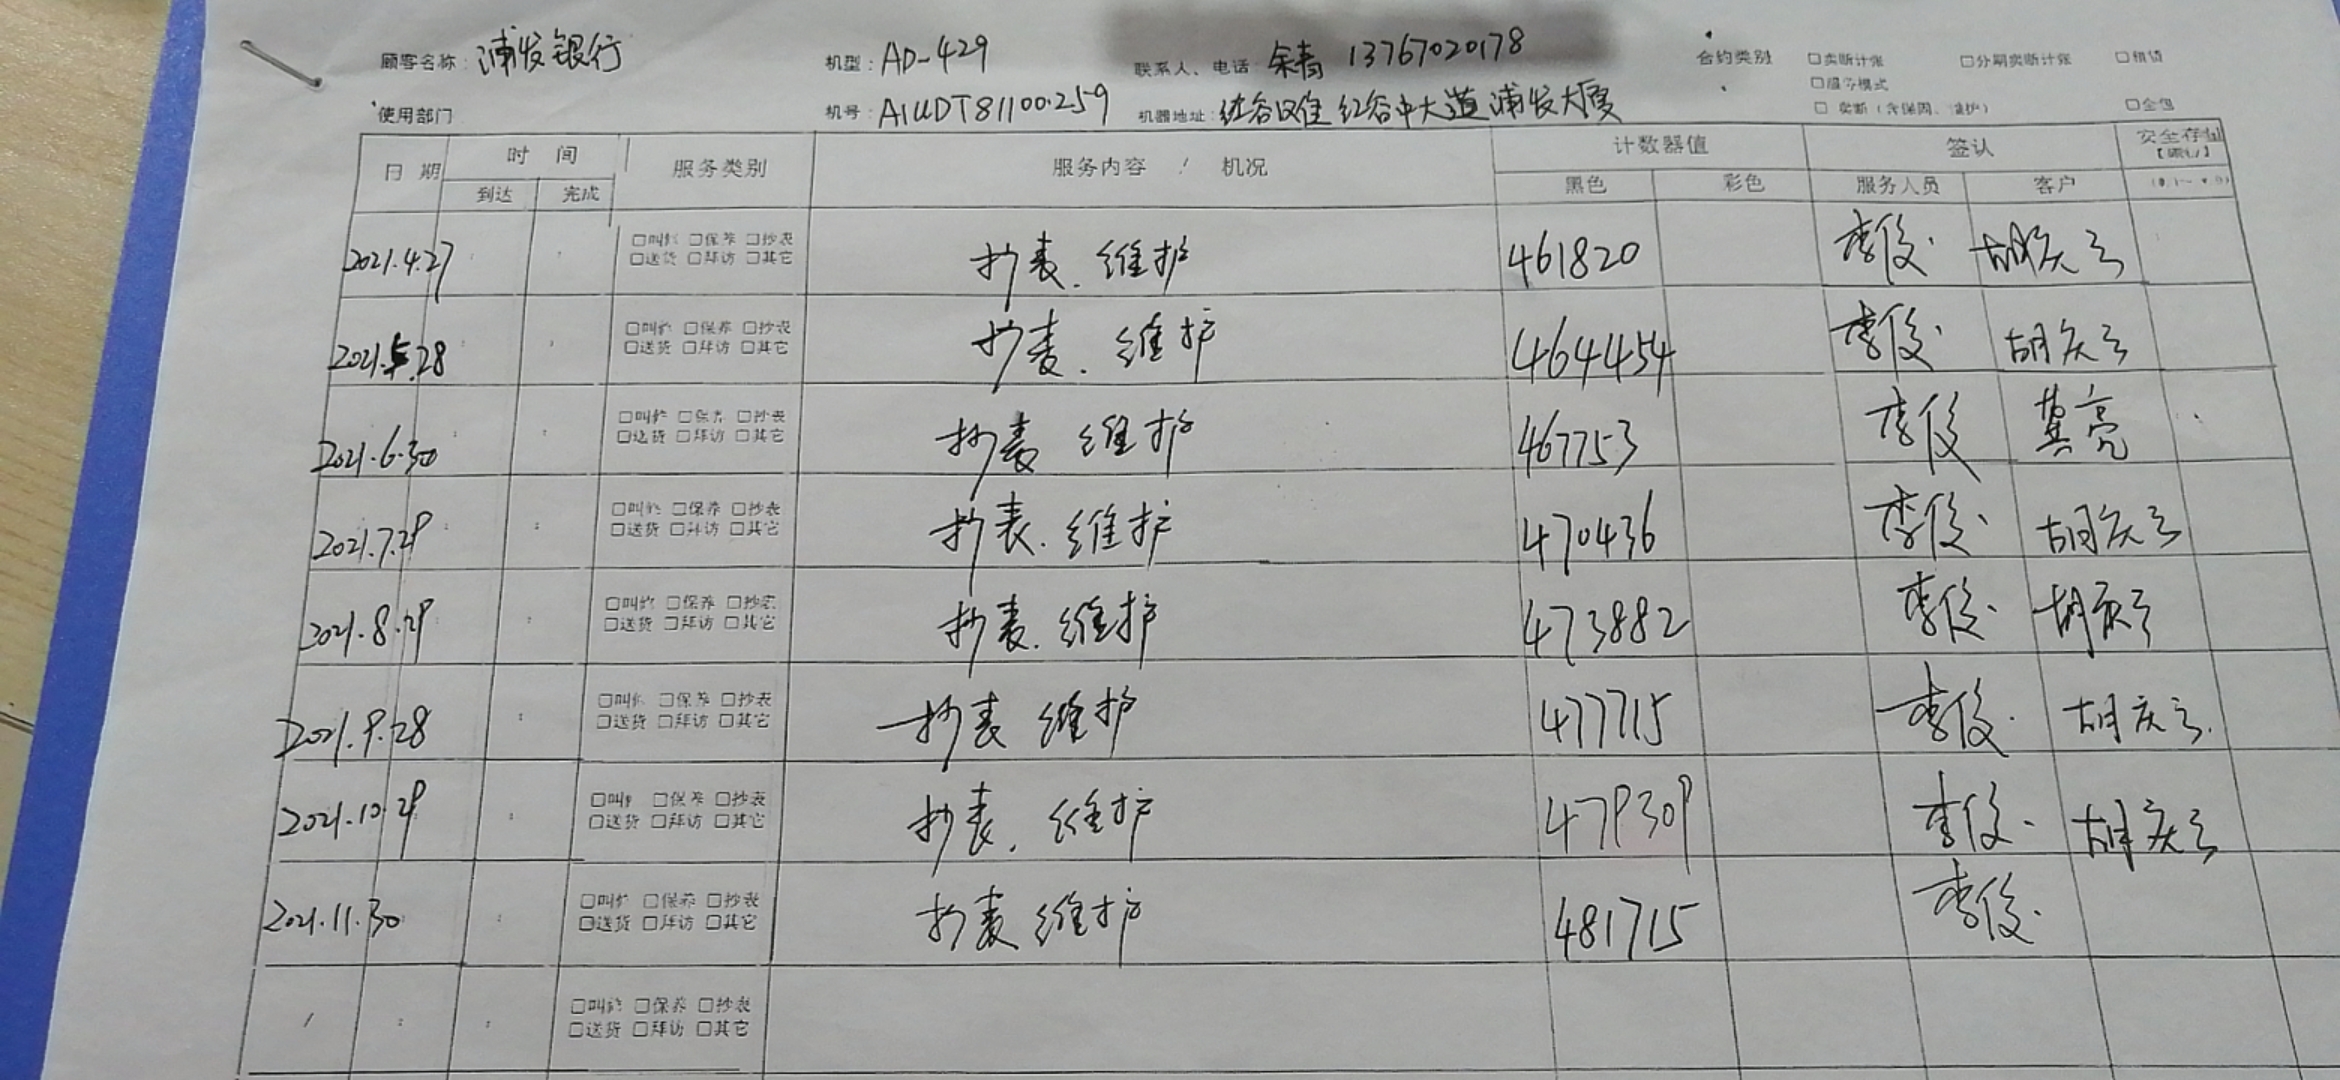 顾客名称：浦发银行 机型：AD-429 联系人、电话 余青 13767020178 合约类别 □卖断计张 □分期卖断计张 □租赁
□服务模式
使用部门 机号：A1UDT81100259 机器地址： 红谷中大道浦发大厦 □卖断（含保固、维护） □全包
日期 时间 服务类别 服务内容 / 机况 计数器值 签认 安全存量
到达 完成 黑色 彩色 服务人员 客户
2021.4.27 □叫修 □保养 □抄表 抄表.维护 461820 李俊. 胡庆云
□送货 □拜访 □其它
2021.5.28 □叫修 □保养 □抄表 抄表.维护 464454 李俊. 胡庆云
□送货 □拜访 □其它
2021.6.30 □叫修 □保养 □抄表 抄表 维护 467753 李俊 龚亮
□送货 □拜访 □其它
2021.7.29 □叫修 □保养 □抄表 抄表.维护 470436 李俊. 胡庆云
□送货 □拜访 □其它
2021.8.29 □叫修 □保养 □抄表 抄表.维护 473882 李俊. 胡庆云
□送货 □拜访 □其它
2021.9.28 □叫修 □保养 □抄表 抄表 维护 477715 李俊. 胡庆云.
□送货 □拜访 □其它
2021.10.29 □叫修 □保养 □抄表 抄表.维护 479309 李俊. 胡庆云
□送货 □拜访 □其它
2021.11.30 □叫修 □保养 □抄表 抄表 维护 481715 李俊.
□送货 □拜访 □其它
/ □叫修 □保养 □抄表
□送货 □拜访 □其它